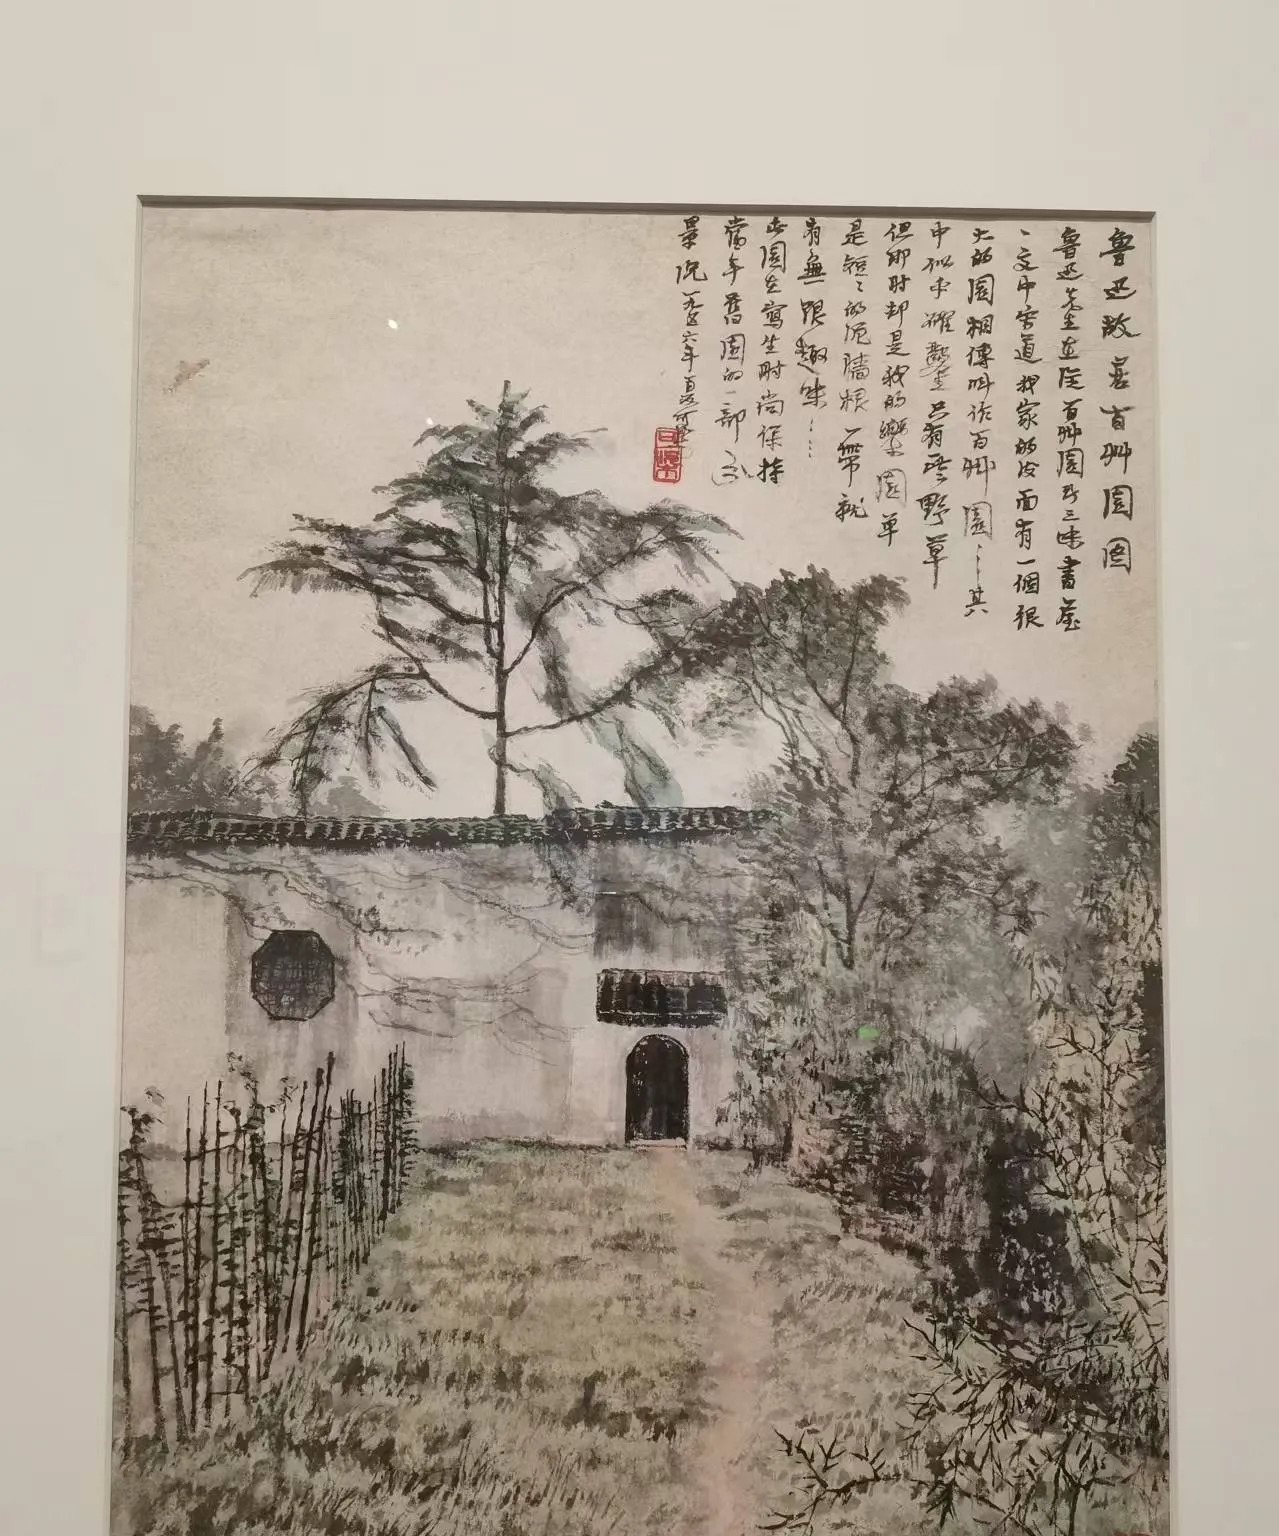 魯迅故居百艸園图
魯迅先生在從百艸園到三味書屋
一文中寫道我家的後面有一個很
大的園相傳叫作百艸園……其
中似乎確鑿只有些野草
但那时却是我的樂園单
是短〻的泥牆根一帶就
有無限趣味……
此園在寫生时尚保持
當年舊園的一部分
景况一九五六年夏可染